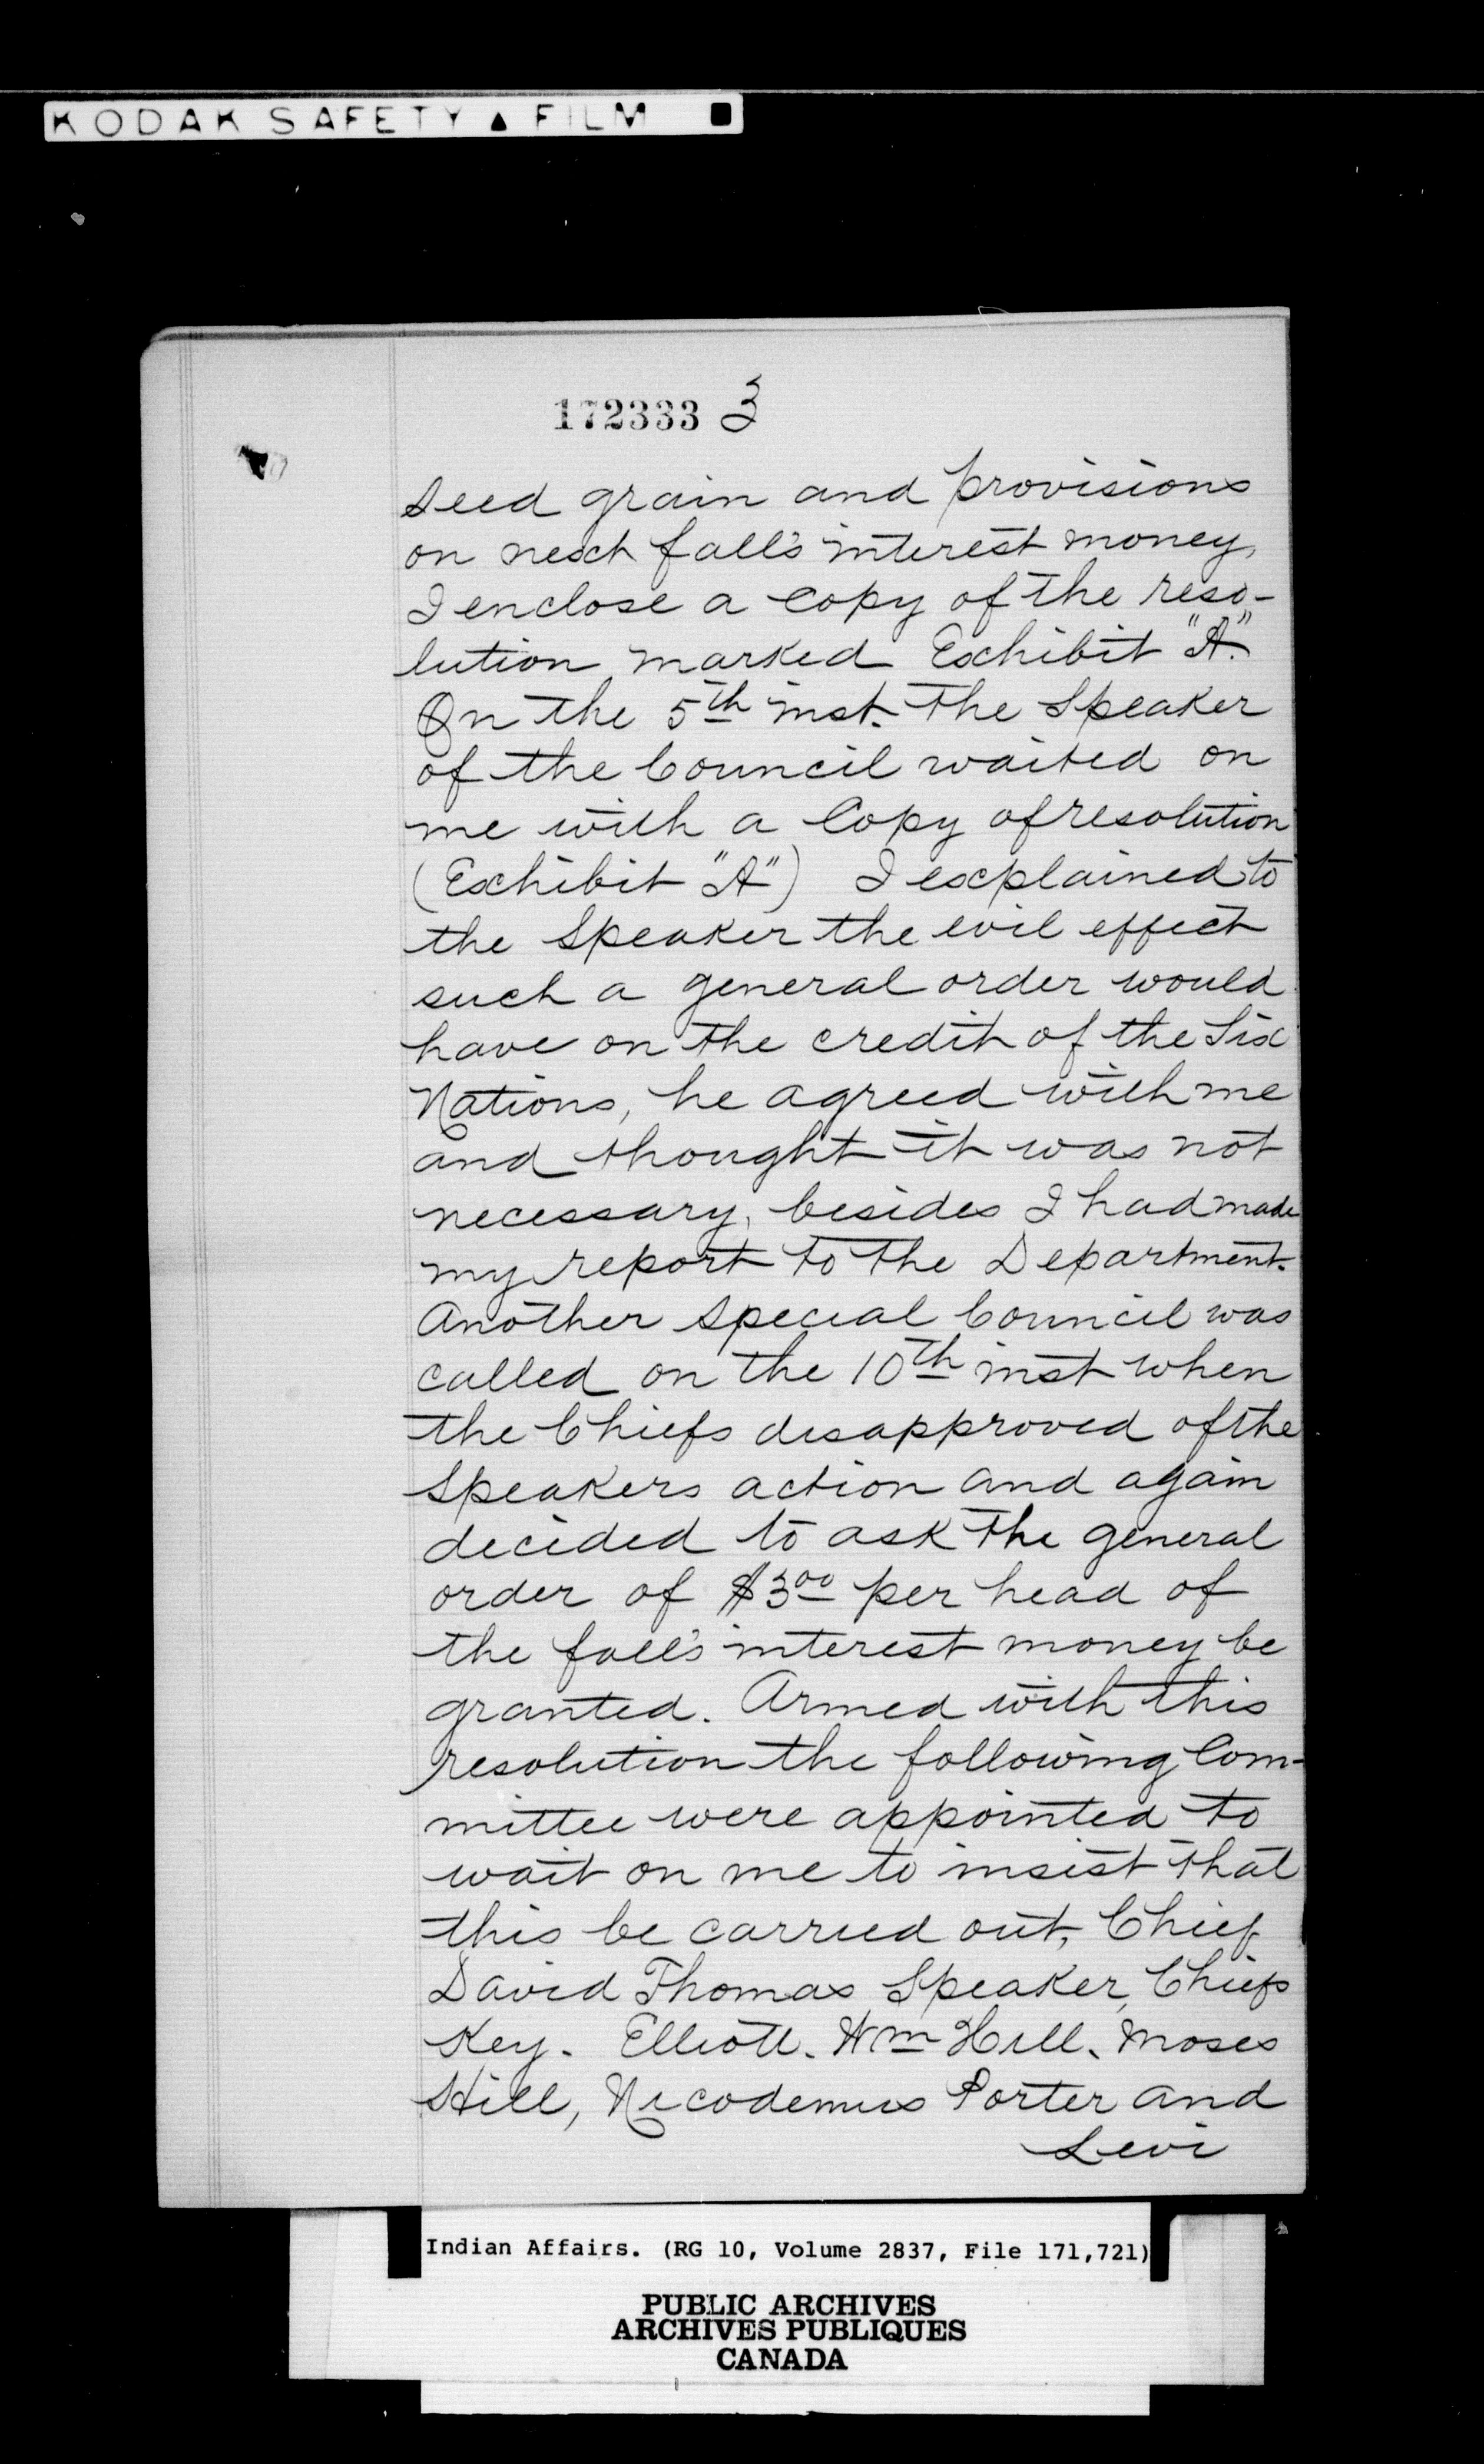 KODAK SAFETY ▲ FILM ■
172333 3
Seed grain and provisions
on next fall's interest money,
I enclose a Copy of the reso-
lution marked Exhibit "A".
On the 5th inst. the Speaker
of the Council waited on
me with a Copy of resolution
(Exhibit "A") I explained to
the Speaker the evil effect
such a general order would
have on the credit of the Six
Nations, he agreed with me
and thought it was not
necessary, besides I had made
my report to the Department.
Another Special Council was
called on the 10th inst when
the Chiefs disapproved of the
Speakers action and again
decided to ask the general
order of $3.00 per head of
the fall's interest money be
granted. Armed with this
resolution the following Com-
mittee were appointed to
wait on me to insist that
this be carried out, Chief
David Thomas Speaker, Chiefs
Key. Elliott. Wm Hill. Moses
Hill, Nicodemus Porter and
Levi
Indian Affairs. (RG 10, Volume 2837, File 171,721)
PUBLIC ARCHIVES
ARCHIVES PUBLIQUES
CANADA